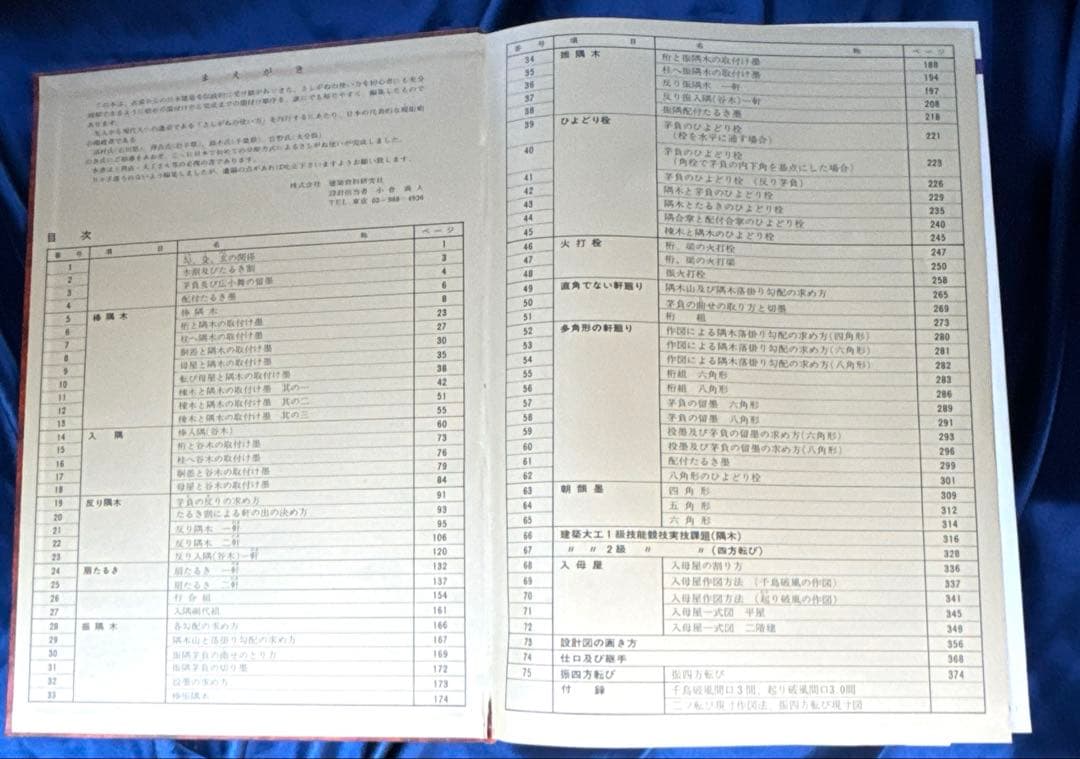 まえがき
株式会社 建築資料研究社
設計担当者 小倉
TEL 東京 03-988-4936
目次
番号 項目 名称 ページ
1 の関係 1
2 木割及びたるき割 3
3 茅負及び広小舞の留墨 4
4 配付たるき墨 6
5 棒隅木 棒隅木 8
6 桁と隅木の取付け墨 23
7 柱へ隅木の取付け墨 27
8 胴差と隅木の取付け墨 30
9 母屋と隅木の取付け墨 35
10 転び母屋と隅木の取付け墨 38
11 棟木と隅木の取付け墨 其の一 42
12 棟木と隅木の取付け墨 其の二 51
13 棟木と隅木の取付け墨 其の三 55
14 入隅 棒入隅(谷木) 60
15 桁と谷木の取付け墨 73
16 柱へ谷木の取付け墨 76
17 胴差と谷木の取付け墨 79
18 母屋と谷木の取付け墨 84
19 反り隅木 茅負の反りの求め方 91
20 たるき割による軒の出の決め方 93
21 反り隅木 一軒 95
22 反り隅木 二軒 106
23 反り入隅(谷木)一軒 120
24 扇たるき 扇たるき 一軒 132
25 扇たるき 二軒 137
26 行合組 154
27 入隅 161
28 振隅木 各勾配の求め方 166
29 隅木山と落掛り勾配の求め方 167
30 振隅茅負の曲せのとり方 169
31 振隅茅負の切り墨 172
32 投墨の求め方 173
33 棒振隅木 174
番号 項目 名称 ページ
34 振隅木 桁と隅木の取付け墨 188
35 柱へ振隅木の取付け墨 194
36 反り振隅木 一軒 197
37 反り振入隅(谷木)一軒 208
38 振隅配付たるき墨 218
39 ひよどり栓 茅負のひよどり栓
(栓を水平に通す場合) 221
40 茅負のひよどり栓
(角栓で茅負の内下角を基点にした場合) 223
41 茅負のひよどり栓 (反り茅負) 226
42 隅木と茅負のひよどり栓 229
43 隅木とたるきのひよどり栓 235
44 隅合掌と配付合掌のひよどり栓 240
45 棟木と隅木のひよどり栓 245
46 火打栓 桁、梁の火打栓 247
47 桁、梁の火打梁 250
48 振火打栓 258
49 直角でない軒廻り 隅木山及び隅木落掛り勾配の求め方 265
50 茅負の曲せの取り方と切墨 269
51 桁組 273
52 多角形の軒廻り 作図による隅木落掛り勾配の求め方(四角形) 280
53 作図による隅木落掛り勾配の求め方(六角形) 281
54 作図による隅木落掛り勾配の求め方(八角形) 282
55 桁組 六角形 283
56 桁組 八角形 286
57 茅負の留墨 六角形 289
58 茅負の留墨 八角形 291
59 投墨及び茅負の留墨の求め方(六角形) 293
60 投墨及び茅負の留墨の求め方(八角形) 296
61 配付たるき墨 299
62 八角形のひよどり栓 301
63 朝顔墨 四角形 309
64 五角形 312
65 六角形 314
66 建築大工1級技能競技実技課題(隅木) 316
67 〃 〃 2級 〃 〃 (四方転び) 328
68 入母屋 入母屋の割り方 336
69 入母屋作図方法 (千鳥破風の作図) 337
70 入母屋作図方法 (起り破風の作図) 341
71 入母屋一式図 平屋 345
72 入母屋一式図 二階建 349
73 設計図の画き方 356
74 仕口及び継手 368
75 振四方転び 振四方転び 374
付録 千鳥破風間口3間、起り破風間口3.0間
二ツ転び現寸作図法、振四方転び現寸図